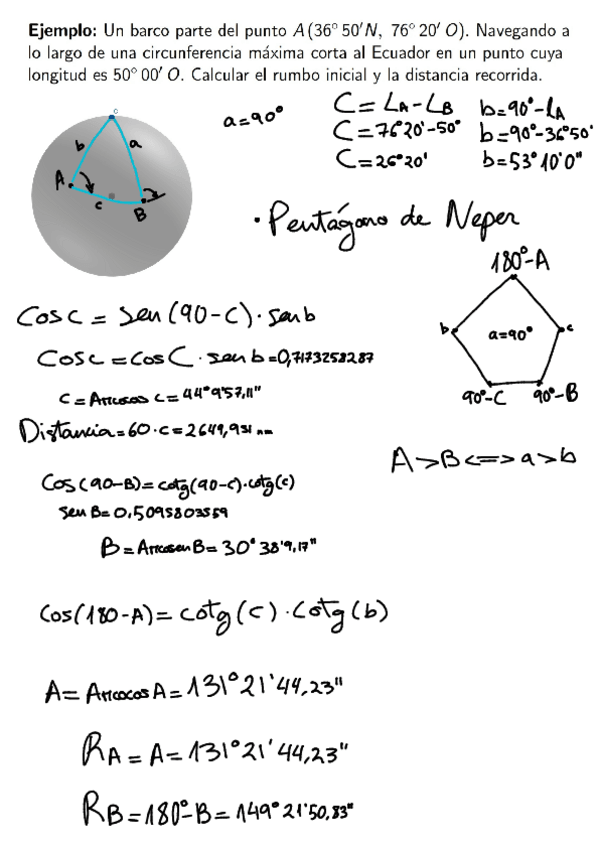 Ejemplo: Un barco parte del punto A(36° 50′ N, 76° 20′ O). Navegando a
lo largo de una circunferencia máxima corta al Ecuador en un punto cuya
longitud es 50° 00′ O. Calcular el rumbo inicial y la distancia recorrida.
a=90°
C = LA - LB
C = 76°20' - 50°
C = 26°20'
b=90°-lA
b=90°-36°50'
b=53°10'0"
C
b
a
A
c
B
· Pentágono de Neper
180°-A
b
a=90°
c
90°-C
90°-B
Cos c = Sen (90-C) · Sen b
Cos c = Cos C · sen b = 0,7173258287
c = Arccos c = 44°9'57,11"
Distancia = 60 · c = 2649,931 nm
A > B <=> a > b
Cos (90-B) = cotg (90-C) · cotg (c)
sen B = 0,5095803559
B = Arcosen B = 30° 38'9,17"
Cos (180-A) = cotg (c) · Cotg (b)
A = Arccocos A = 131°21'44,23"
RA = A = 131°21'44,23"
RB = 180°-B = 149°21'50,83"